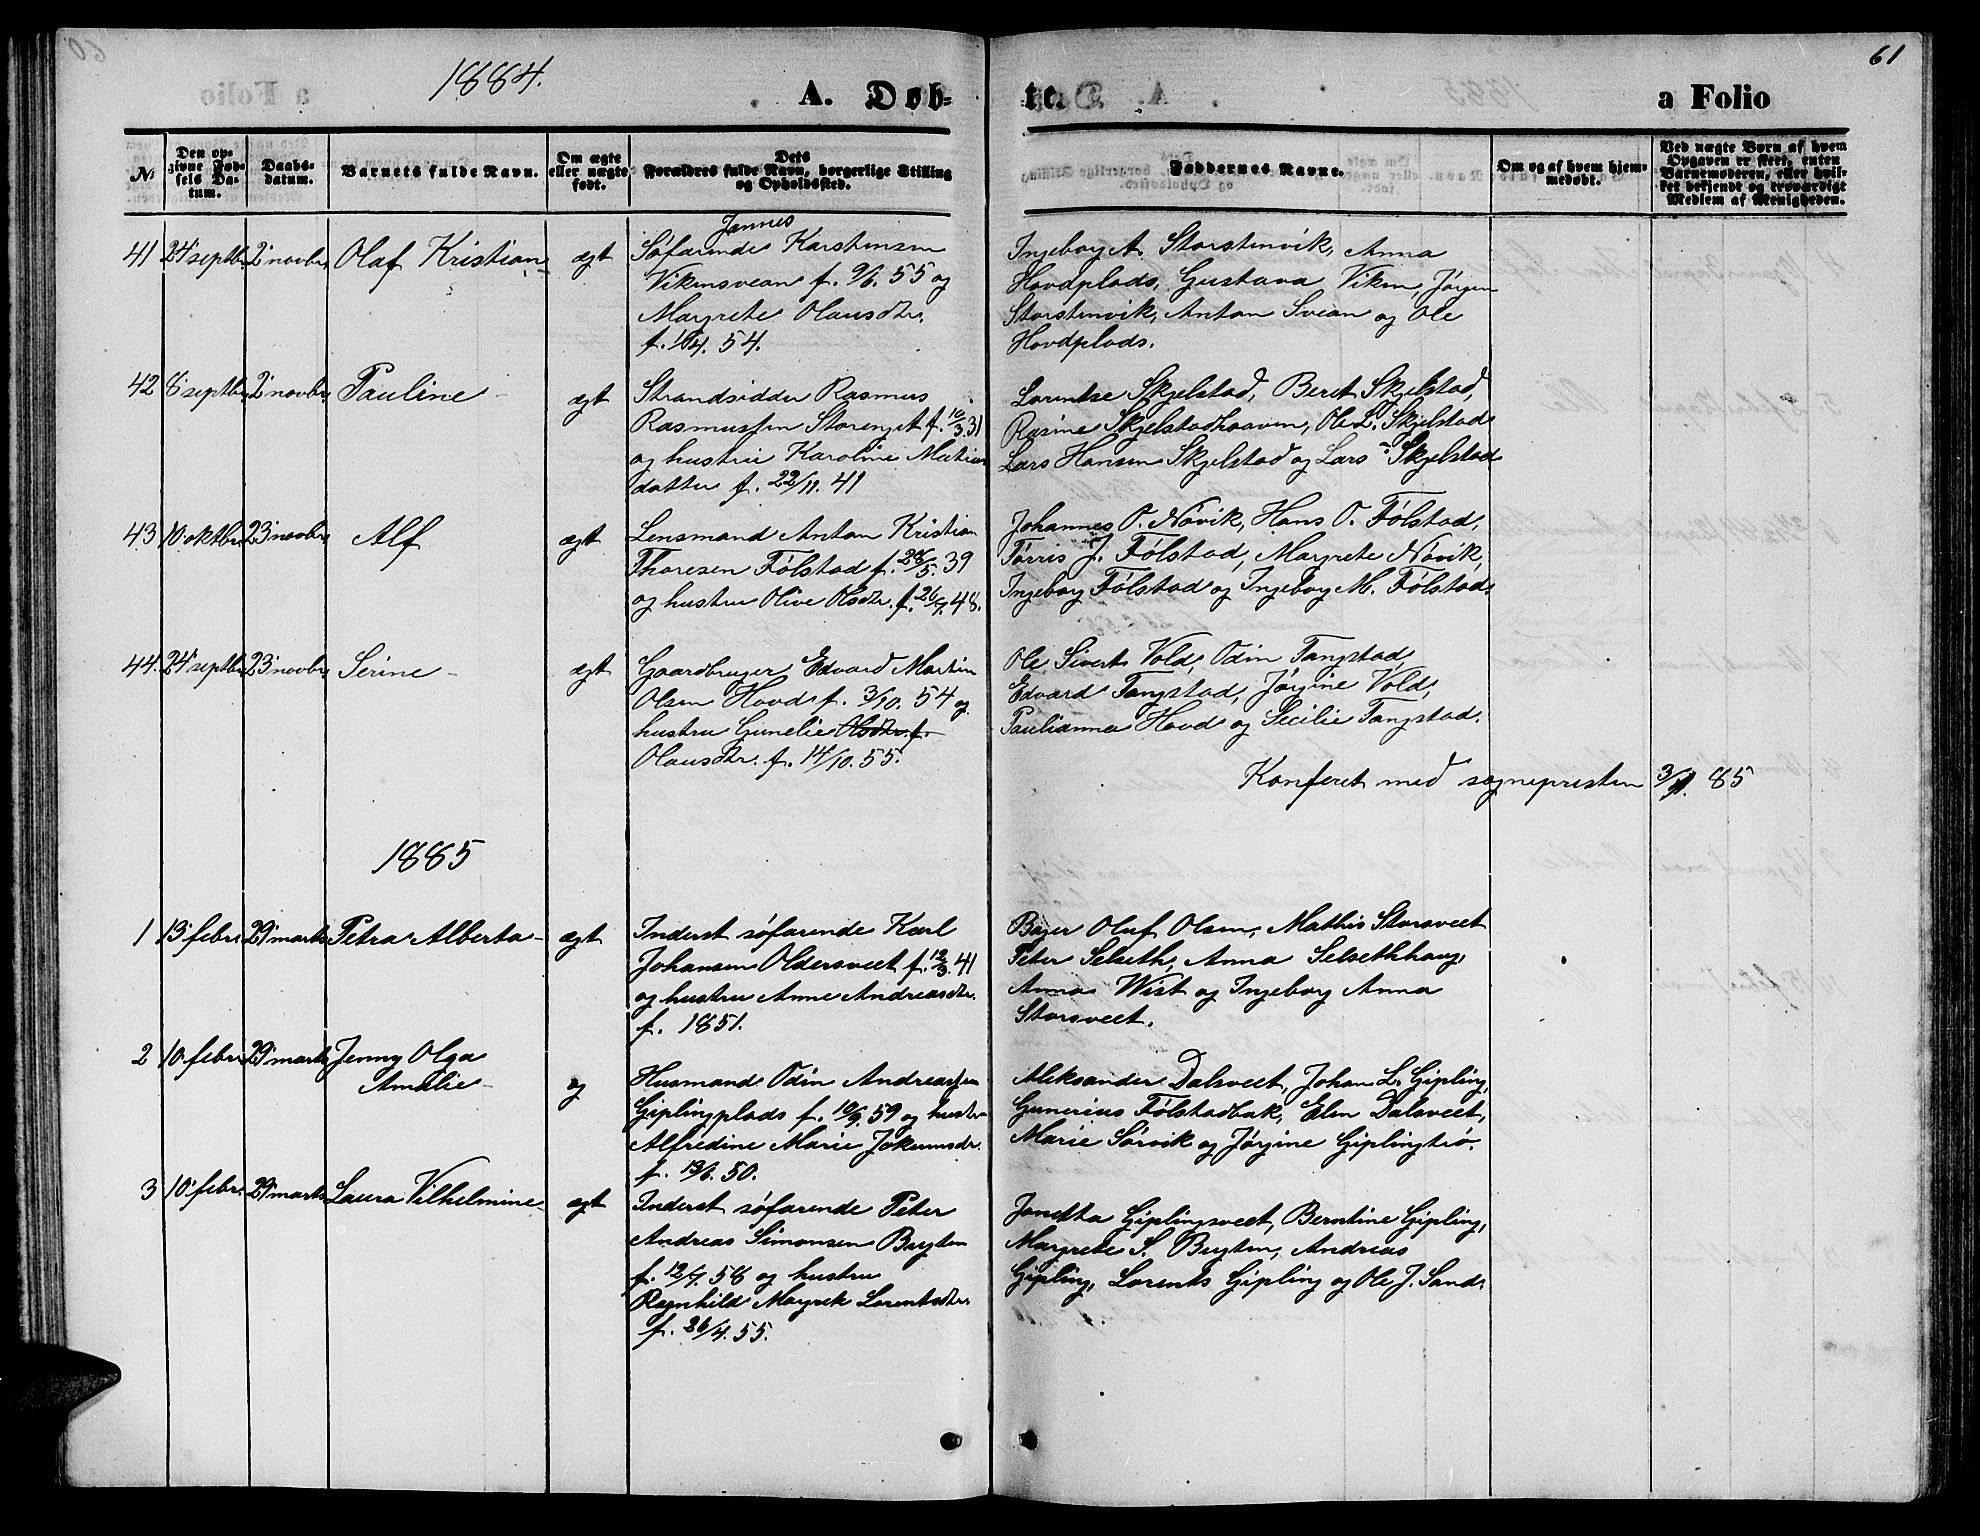 61
1884.
A. Døb-
te.
a Folio
No
Den op-
givne Fød-
sels Da-
tum.
Daabs-
datum.
Barnets fulde Navn.
Om ægte
eller uægte
født.
Dets
Forældres fulde Navn, borgerlige Stilling
og Opholdssted.
Faddernes Navne.
Om og af hvem hjem-
medøbt.
Ved uægte Børn af hvem
Opgaven er skeet, enten
Barnemoderen, eller hvil-
ket bekjendt og troværdigt
Medlem af Menigheden.
41 24' septbr. 2' novbr. Olaf Kristian ægt
Jannes
Søfarende Karstensen
Vikensvean f. 9/6. 55 og
Margrete Olausdtr.
f. 16/4. 54.
Ingeborg A Storstenvik, Anna
Hovdplads, Gustava Viken, Jørgen
Storstenvik, Anton Svean og Ole
Hovdplads.
42 8' septbr. 2' novbr. Pauline - ægt
Strandsidder Rasmus
Rasmussen Storenget f. 10/3. 31
og hustru Karoline Matias
datter f. 22/11. 41
Lorentse Skjelstad, Beret Skjelstad,
Rasine Skjelstadhaaven, Ole L. Skjelstad
Lars Hansen Skjelstad og Lars Skjelstad
43 10' oktbr. 23' novbr. Alf ægt
Lensmand Anton Kristian
Thoresen Følstad f. 28/5. 39
og hustru Olive Olsdtr. f. 26/7. 48.
Johannes O. Nøvik, Hans O. Følstad,
Tørris J. Følstad, Margrete Nøvik,
Ingeborg Følstad og Ingeborg M. Følstad.
44. 24' septbr. 23' novbr. Serine - ægt
Gaardbruger Edvard Martin
Olsen Hovd f. 3/10. 54 og
hustru Gunelie Olsdtr. f.
Olausdtr. f. 14/10. 55.
Ole Siverts Vold, Odin Tangstad,
Edvard Tangstad, Jørgine Vold,
Paulianna Hovd og Secilie Tangstad.
Konferet med sognepresten 3/1. 85
1885
1 13' febr. 29' marts Petra Alberta - ægt
Inderst søfarende Karl
Johansen Oldersveet f. 12/3. 41
og hustru Anne Andreasdtr.
f. 1851.
Olaf Olsen, Mathis Storsveet
Peter Selseth, Anna Selsethhaug,
Anna Wist og Ingeborg Anna
Storsveet.
2 10' febr. 29' marts Jenny Olga
Amalie - og
Husmand Odin Andreassen
Giplingplads f. 10/9. 59 og hustru
Alfredine Marie Jokumsdr.
f. 13/6. 50.
Aleksander Dalsveet, Johan L. Gipling,
Gunerius Følstadbak, Elen Dalsveet,
Marie Sørvik og Jørgine Giplingtrø.
3 10' febr. 29' marts Laura Vilhelmine - ægt
Inderst søfarende Peter
Andreas Simonsen Bugten
f. 12/7. 58 og hustru
Ragnhild Margrete Lorentsdtr.
f. 26/4. 55.
Janetta Giplingsveet, Berntine Gipling,
Margrete S. Bugten, Andreas
Gipling, Lorents Gipling og Ole J. Sand.